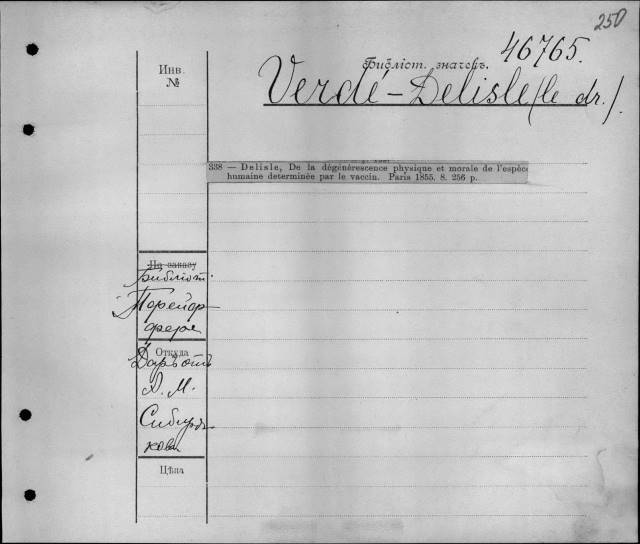 250
46765.
Библіот. значокъ.
Verdé-Delisle (le dr.).
Инв.
№
338 — Delisle, De la dégénérescence physique et morale de l'espèce
humaine determinée par le vaccin. Paris 1855. 8. 256 p.
По заказу
Библіот.
Откуда
Даръ отъ
А. М.
Сибиря-
кова
Цѣна